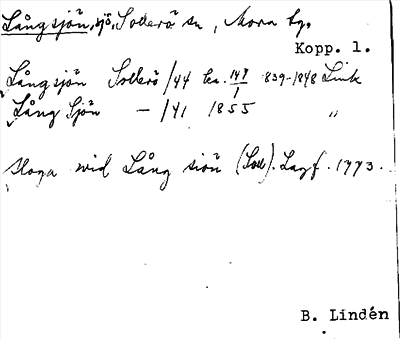 Långsjön, sjö, Sollerö sn, Mora tg.
Kopp. l.
Långsjön Sollerö /44 ca. 147/1 839-1848 Link
Lång Sjön – /41 1855 "
sloga wid Lång siön (Soll). Lagf. 1773.
B. Lindén